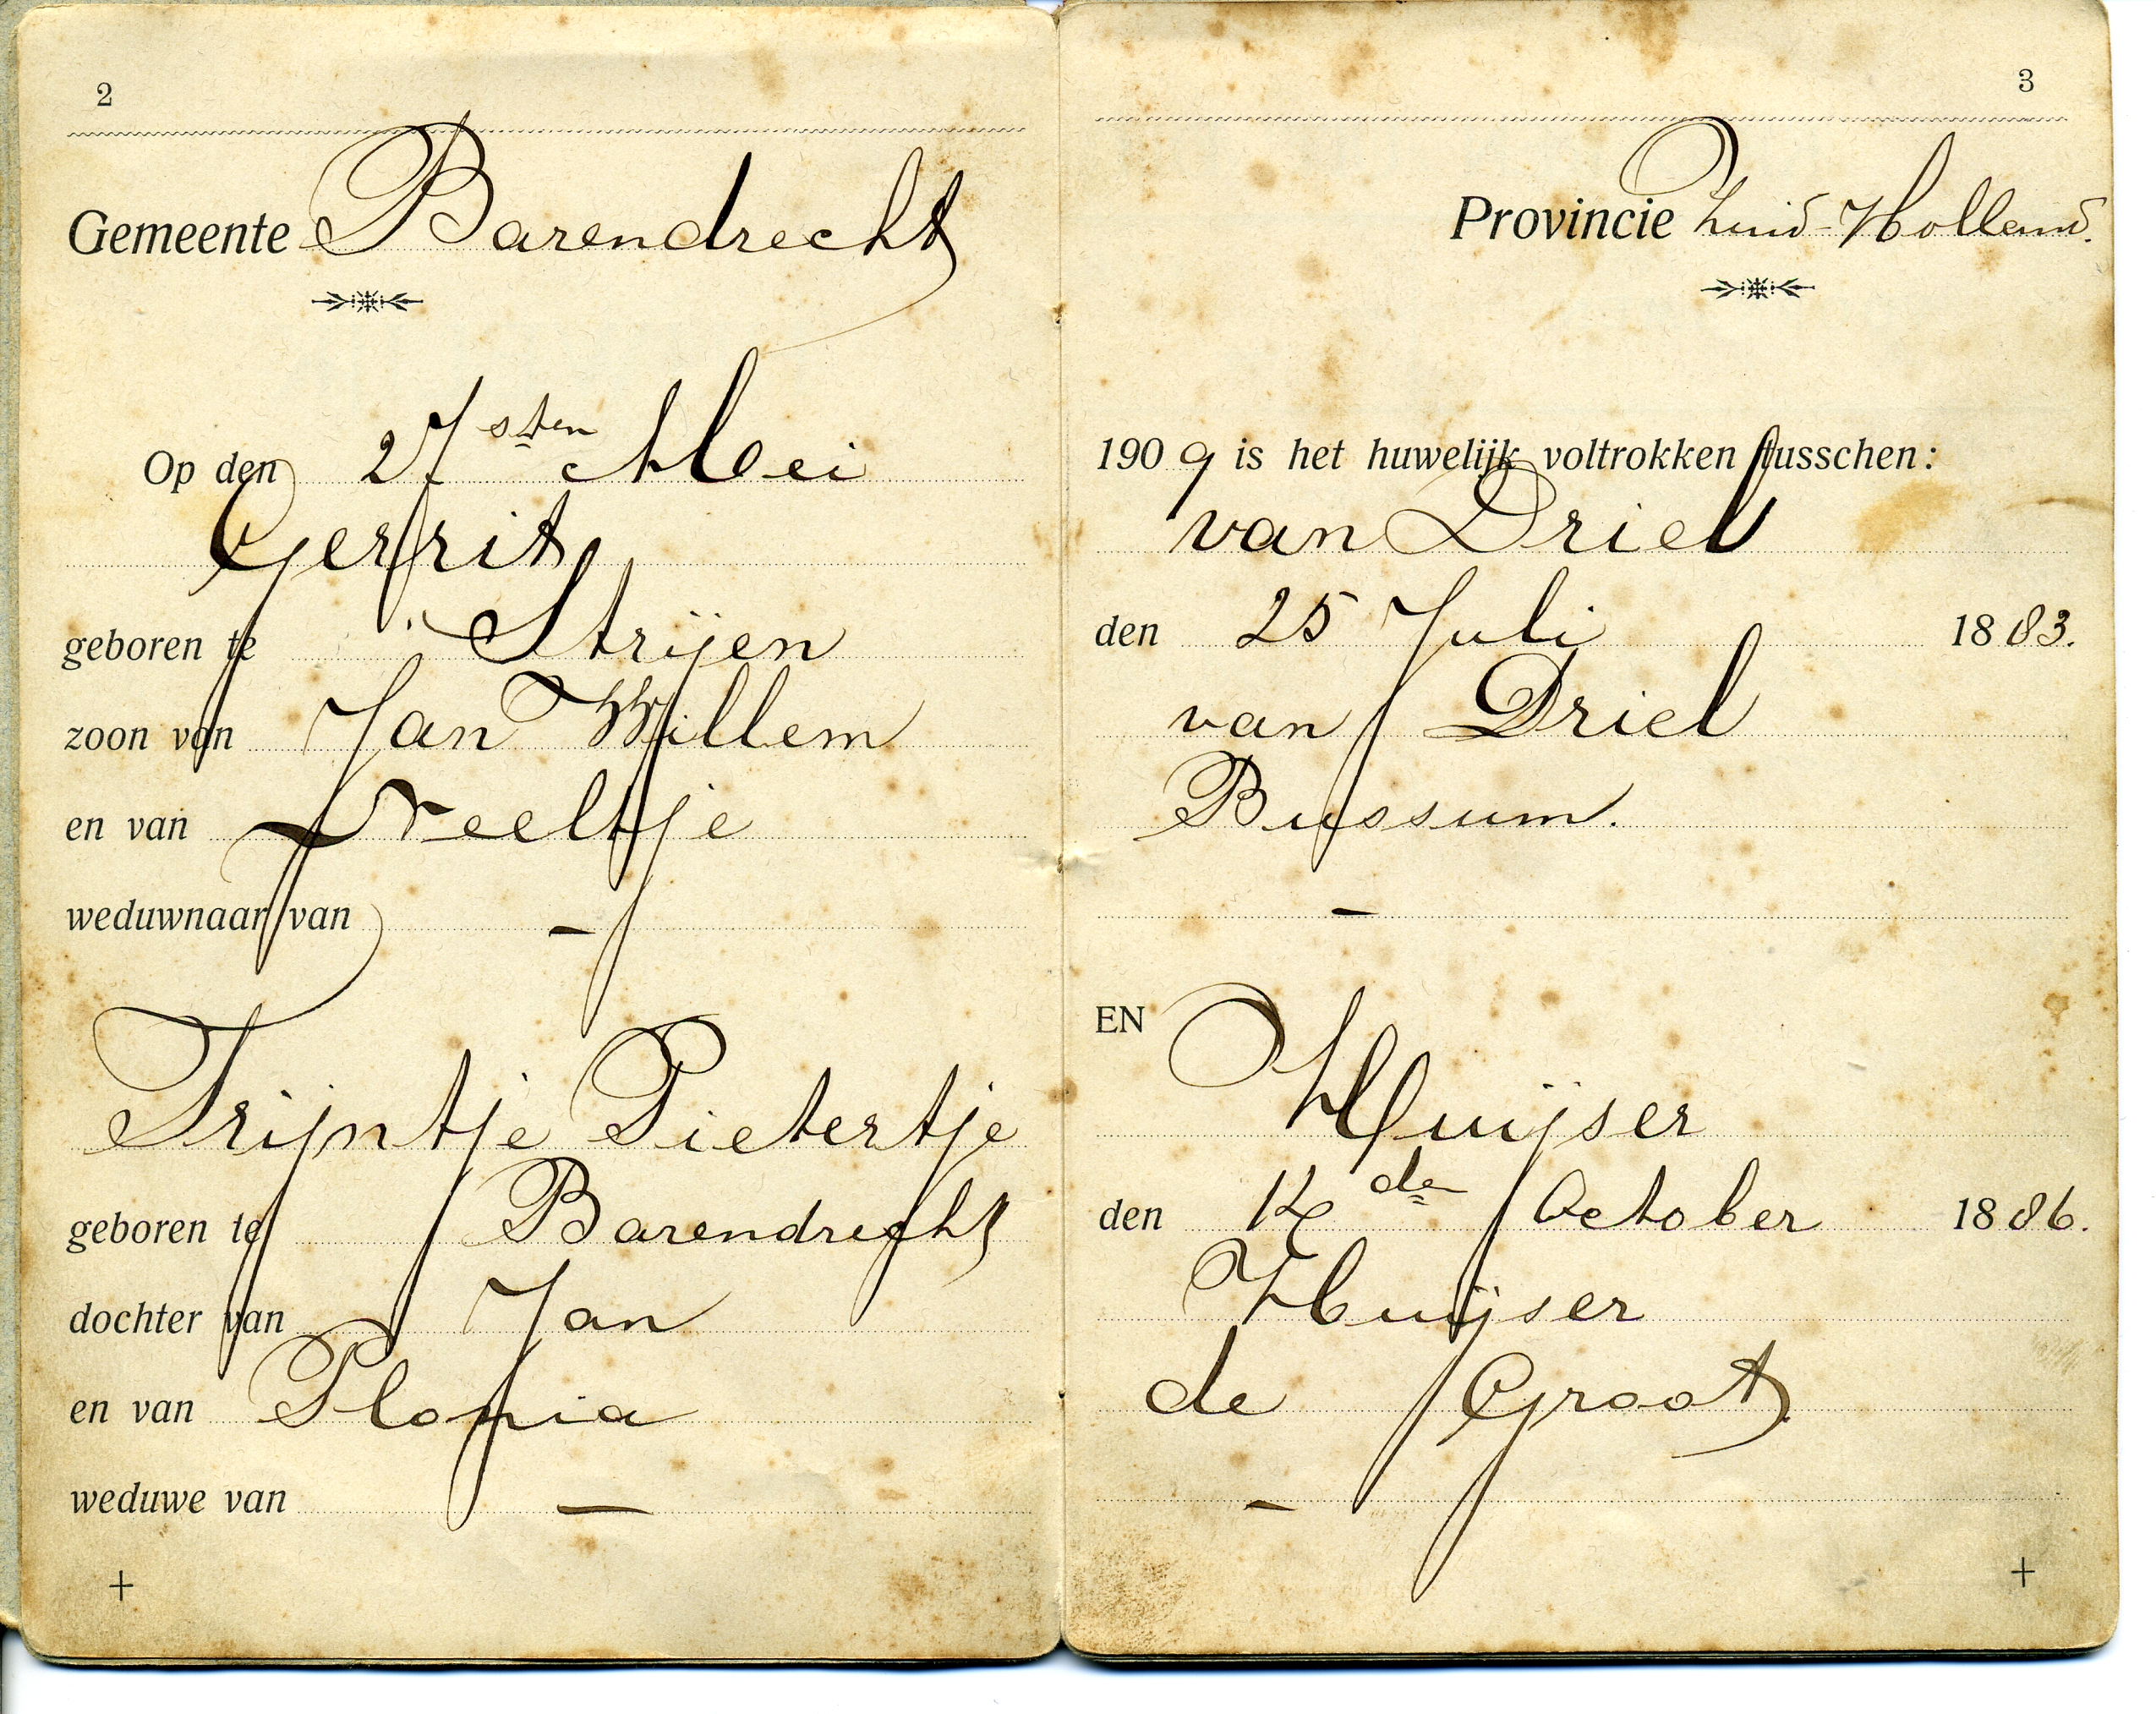 2
Gemeente Barendrecht
Op den 27sten Mei
Gerrit
geboren te Strijen
zoon van Jan Willem
en van Neeltje
weduwnaar van –
Trijntje Pietertje
geboren te Barendrecht
dochter van Jan
en van Plonia
weduwe van –
+
3
Provincie Zuid-Holland.
1909 is het huwelijk voltrokken tusschen:
van Driel
den 25 Juli 1883.
van Driel
Bussum.
–
EN
Huijser
den October 1886.
Huijser
de Groot
–
+